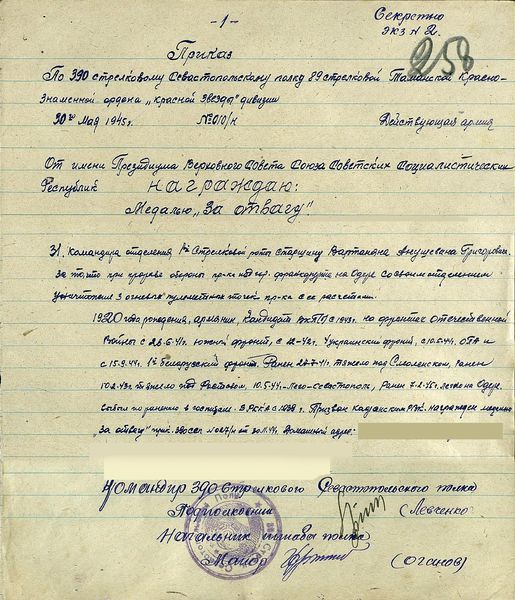 -1-
Секретно
экз N 2.
258
Приказ
По 390 стрелковому Севастопольскому полку 89 стрелковой Таманской Красно-
Знаменной ордена „Красной Звезды" дивизии
30го Мая 1945г. № 010/н Действующая армия
От имени Президиума Верховного Совета Союза Советских Социалистических
Республик награждаю:
Медалью „За отвагу".
31. Командира отделения 1й Стрелковой роты старшину Вартаняна Анушевана Григоров.
За то, что при прорыве обороны пр-ка на Одере со своим отделением
уничтожил 3 огневые пулеметные точки пр-ка с ее расчетами.
1920 года рождения, армянин, Кандидат ВКП(б) с 1943г. на фронтах отечественной
войны с 28.6.41г. южный фронт, с 4 украинский фронт, с 10.5.44г. ОПА и
с 15.9.44г. 1й белорусский фронт. Ранен 28.7-41г. тяжело под Смоленском, ранен
10.2.43г. тяжело под Ростовом, 10.5.44г.-легко-Севастополь, Ранен 7.2.45г. легко на Одере
выбыл по ранению в госпиталь. В РККА с 1938г. Призван РВК. награжден медалью
„За отвагу" № 027/н от 44г. Домашний адрес:
Командир 390 Стрелкового Севастопольского полка
Подполковник (Левченко
Начальник штаба полка
Майор (Оганов)